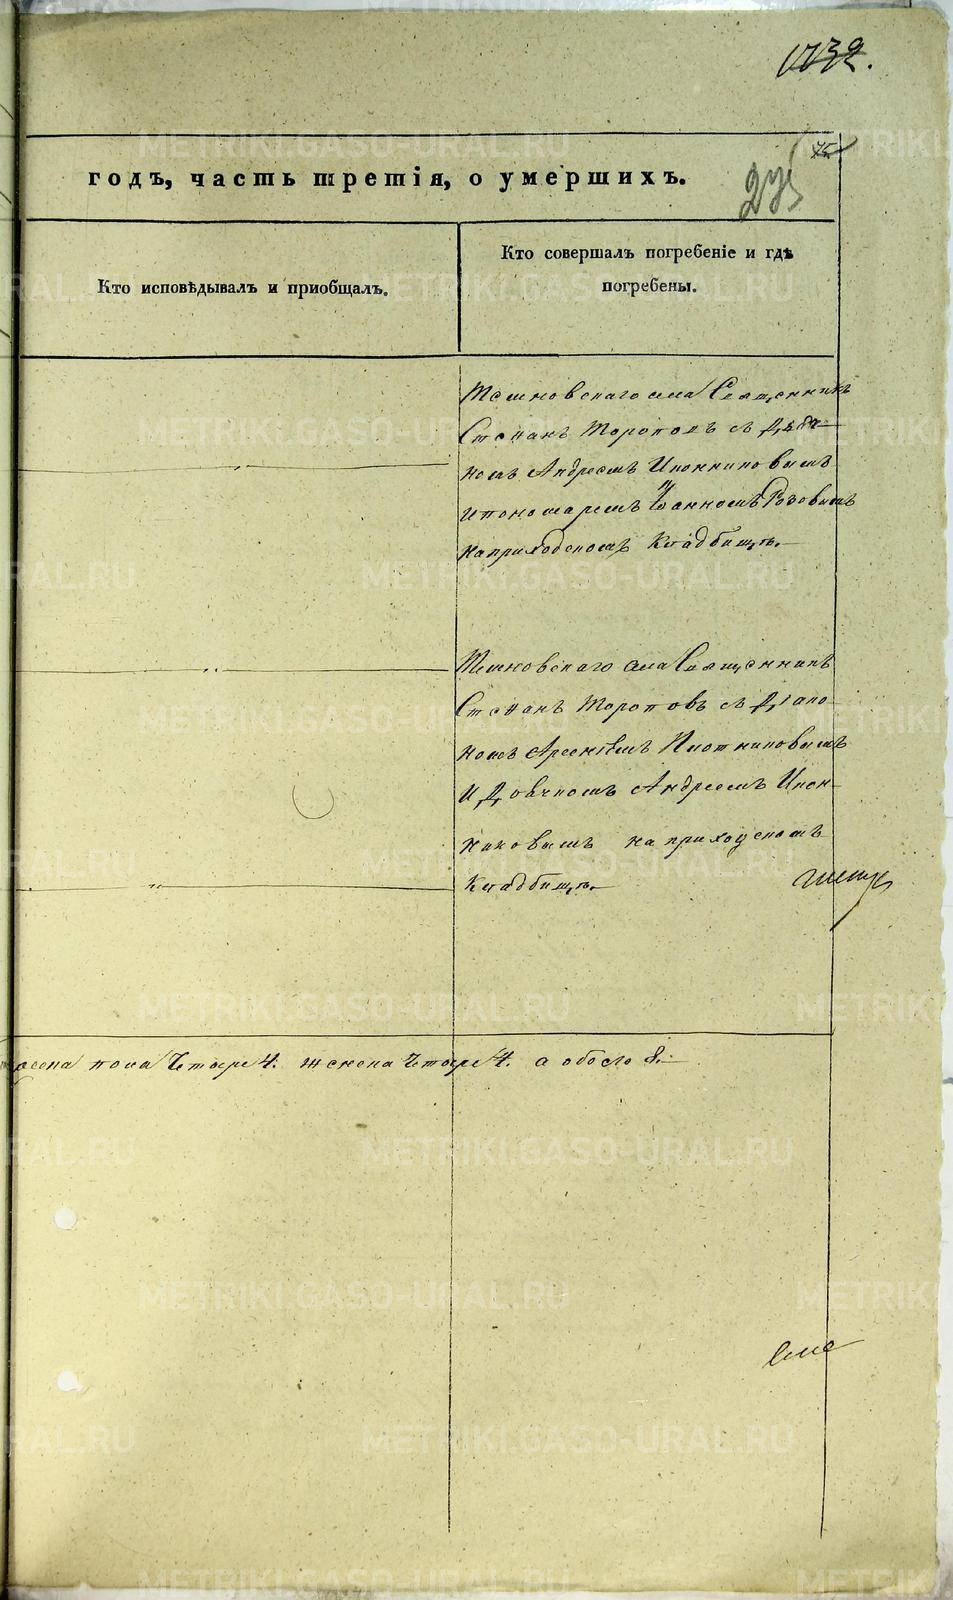 1732.
75
275
годъ, часть третія, о умершихъ.
Кто исповѣдывалъ и пріобщалъ.
Кто совершалъ погребеніе и гдѣ
погребены.
села Священникъ
Стефанъ Тороповъ съ Дьяко-
номъ Андреемъ Иконниковымъ
и пономаремъ Іоанномъ Розовымъ
на приходскомъ Кладбищѣ.
села Священникъ
Стефанъ Тороповъ съ Діако-
номъ Арсеніемъ Плотниковымъ
и Дьячкомъ Андреемъ Икон-
никовымъ на приходскомъ
Кладбищѣ.
пола Четыре 4. женска Четыре 4. а обоего 8.
METRIKI.GASO-URAL.RU